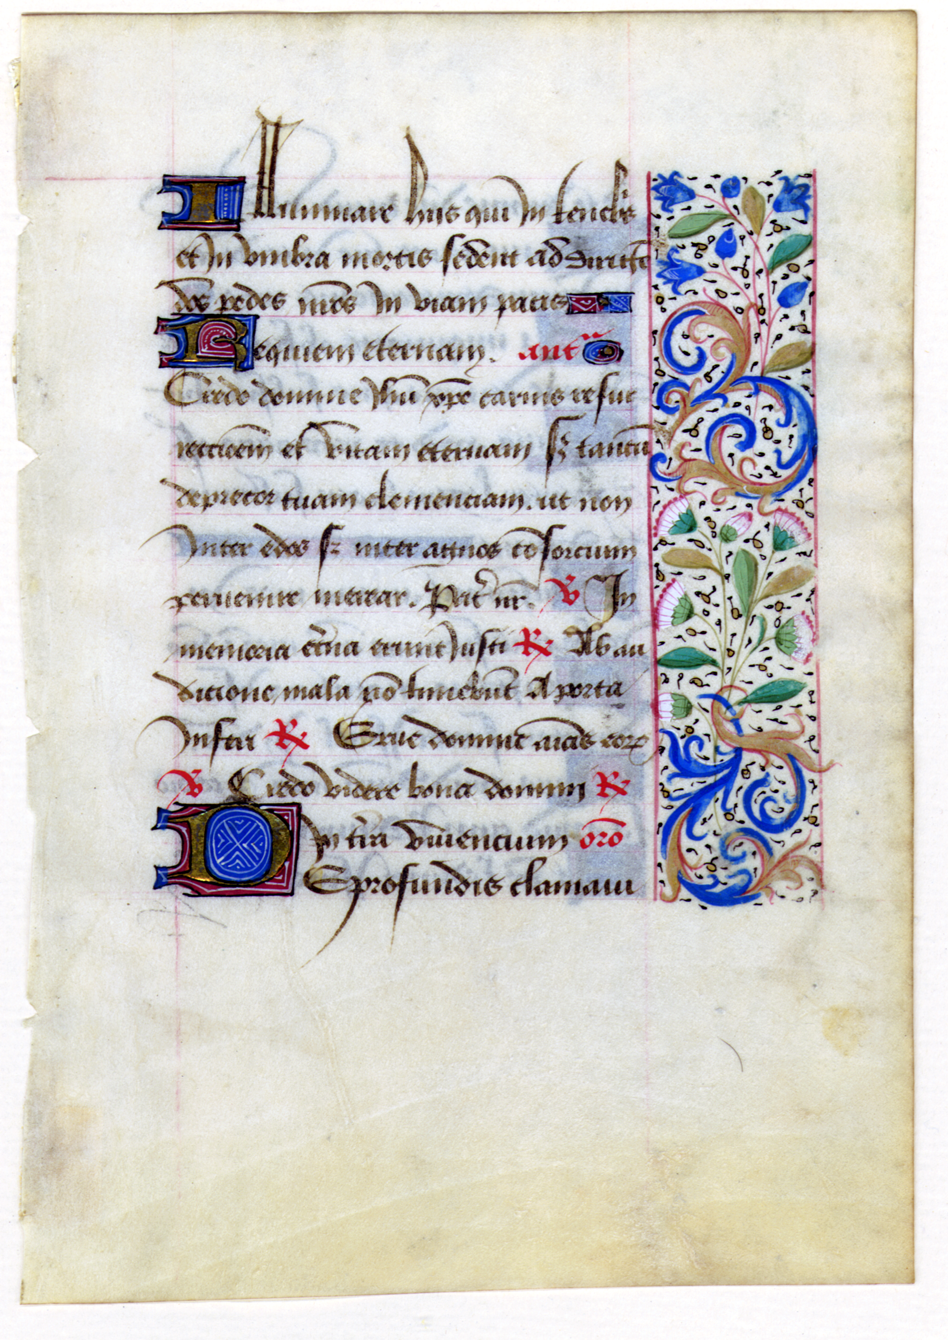 Illuminare hiis qui in tenebris
et in vmbra mortis sedent ad
dos pedes nr̄os in viam pacis
Requiem eternam. ant̄
Credo domine ihū xp̄e carnis resur
recciōem et vitam eternam sz tantū
deprecor tuam clemenciam. ut non
Inter edos sz inter agnos cōsorcium
peruenire merear. Pat̄ nr̄. ℣ In
memoria et̄na erunt Justi ℟ Ab au
dicione mala nō timebūt A porta
Inferi ℟ Erue domine aīas eorꝝ
℣ Credo videre bona domini ℟
in t̄ra viuencium oro
De profundis clamaui